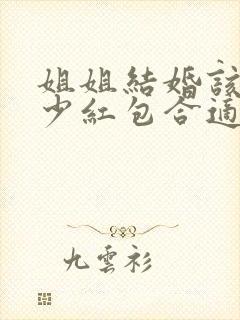 姐姐結婚該
少紅包合適
九雲衫